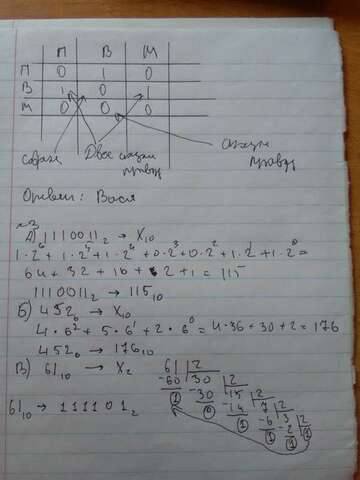 П В М
П 0 1 0
В 1 0 1
М 0 0 0
соврал Двое сказали правду сказали правду
Ответ: Вася
№3
А) 1110011₂ → X₁₀
1·2⁶ + 1·2⁵ + 1·2⁴ + 0·2³ + 0·2² + 1·2¹ + 1·2⁰ =
64 + 32 + 16 + 2 + 1 = 115
1110011₂ → 115₁₀
Б) 452₆ → X₁₀
4·6² + 5·6¹ + 2·6⁰ = 4·36 + 30 + 2 = 176
452₆ → 176₁₀
В) 61₁₀ → X₂
61 2
-60 30 2
1 -30 15 2
0 -14 7 2
1 -6 3 2
1 -2 1
1
61₁₀ → 111101₂